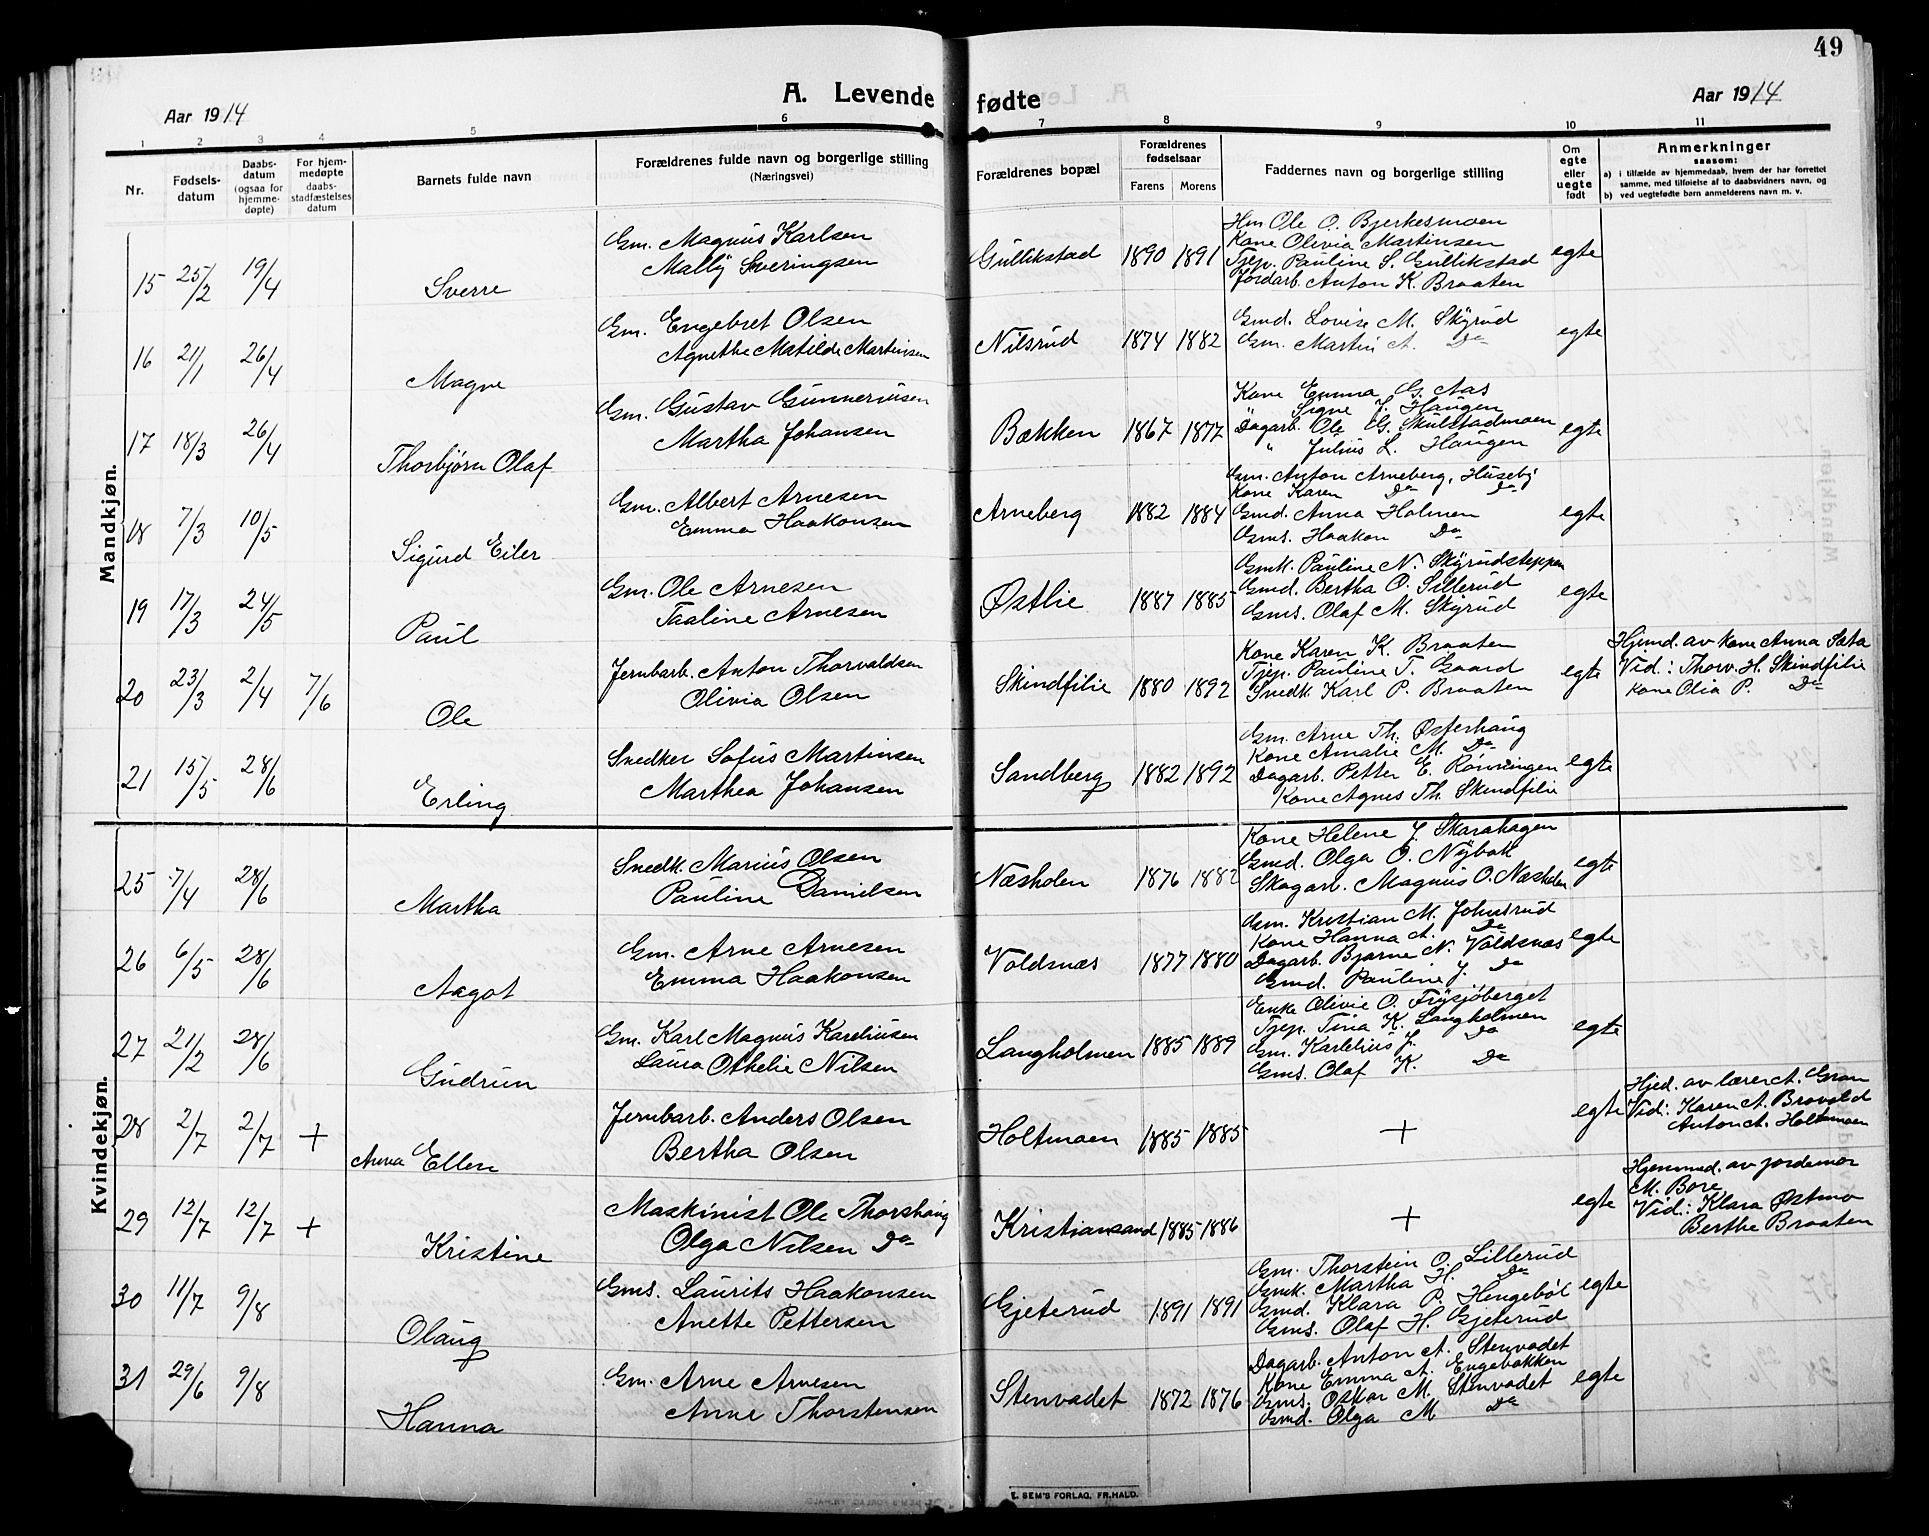 49
Aar 1914
A. Levende fødte
Aar 1914
1 2 3 4 5 6 7 8 9 10 11
Nr.
Fødsels-
datum
Daabs-
datum
(ogsaa for
hjemme-
døpte)
For hjem-
medøpte
daabs-
stadfæstelses
datum
Barnets fulde navn
Forældrenes fulde navn og borgerlige stilling
(Næringsvei)
Forældrenes bopæl
Forældrenes
fødselsaar
Farens Morens
Faddernes navn og borgerlige stilling
Om
egte
eller
uegte
født
Anmerkninger
saasom:
a) i tilfælde av hjemmedaab, hvem der har forrettet
samme, med tilføielse af to daabsvidners navn, og
b) ved uegtefødte børn anmelderens navn m. v.
Mandkjøn.
15 25/2 19/4 Sverre
Gm. Magnus Karlsen
Mally Sveringsen
Gullikstad 1890 1891
Hm Ole O. Bjerkesmoen
Kone Olivia Martinsen
Tjep. Pauline S. Gullikstad
Jordarb. Anton K. Braaten
egte
16 21/1 26/4 Magne
Gm. Engebret Olsen
Agnethe Matilde Martinsen
Nilsrud 1874 1882
Gmd. Lovise M. Skyrud
Gm. Martin A. Do
egte
17 18/3 26/4 Thorbjørn Olaf
Gm. Gustav Gunneriusen
Martha Johansen
Bækken 1867 1872
Kone Emma G. Aas
" Signe J. Haugen
Dagarb. Ole G. Skulstadmoen
" Julius L. Haugen
egte
18 7/3 10/5 Sigurd Eiler
Gm. Albert Arnesen
Emma Haakonsen
Arneberg 1882 1884
Gm. Anton Arneberg, Huseby
Kone Karen Do Do
Gmd. Anna Holmen
Gms. Haakon Do
egte
19 17/3 24/5 Paul
Gm. Ole Arnesen
Taaline Arnesen
Østlie 1887 1885
Gmk. Pauline N. Skyrudsteppen
Gmd. Bertha O. Lillerud
Gms. Olaf M. Skyrud
egte
20 23/3 2/4 7/6 Ole
Jernbarb. Anton Thorvaldsen
Olivia Olsen
Skindfilie 1880 1892
Kone Karen K. Braaten
Tjep. Pauline T. Gaard
Snedk. Karl P. Braaten
egte
Hjemd. av kone Anna Sæta
Vid: Thorv. H. Skindfilie
kone Olia P. Do
21 15/5 28/6 Erling
Snedker Sofus Martinsen
Marthea Johansen
Sandberg 1882 1892
Gm. Arne Th. Østerhaug
Kone Amalie M. Do
Dagarb. Petter E. Rønningen
Kone Agnes Th. Skindfilie
egte
Kvindekjøn.
25 7/4 28/6 Martha
Snedk. Marius Olsen
Pauline Danielsen
Næsholen 1876 1882
Kone Helene J. Skarahagen
Gmd. Olga O. Nybak
Skogarb. Magnus O. Næsholen
egte
26 6/5 28/6 Aagot
Gm. Arne Arnesen
Emma Haakonsen
Voldsnæs 1877 1880
Gm. Kristian M. Johnsrud
Kone Hanna A. Do
Dagarb. Bjarne N. Voldsnæs
Gmd. Pauline J. Do
egte
27 21/2 28/6 Gudrun
Gm. Karl Magnus Kareliusen
Laura Othelie Nilsen
Langholmen 1885 1889
Enke Olivie O. Frysjøberget
Tjep. Tina K. Langholmen
Gm. Karlelius J. Do
Gms. Olaf K. Do
egte
28 2/7 2/7 + Anna Ellen
Jernbarb. Anders Olsen
Bertha Olsen
Holtmoen 1885 1885
+
egte
Hjed. av lærer A. Gran
Vid: Karen A. Bravold
Anton A. Holtmoen
29 12/7 12/7 + Kristine
Maskinist Ole Thorshaug
Olga Nilsen Do
Kristiansand 1885 1886
+
egte
Hjemmed. av jordemor
M. Bore
Vid: Klara Østmo
Berthe Braaten
30 11/7 9/8 Olaug
Gms. Laurits Haakonsen
Anette Pettersen
Gjeterud 1891 1891
Gm. Thorstein O. Lillerud
Gmk. Martha H. Do
Gmd. Klara P. Hengebøl
Gms. Olaf H. Gjeterud
egte
31 29/6 9/8 Hanna
Gm. Arne Arnesen
Anne Thorstensen
Stenvadet 1872 1876
Dagarb. Anton A. Stenvadet
Kone Emma A. Engebakken
Gms. Oskar M. Stenvadet
Gmd. Olga M Do
egte
E. SEM'S FORLAG, FR.HALD.